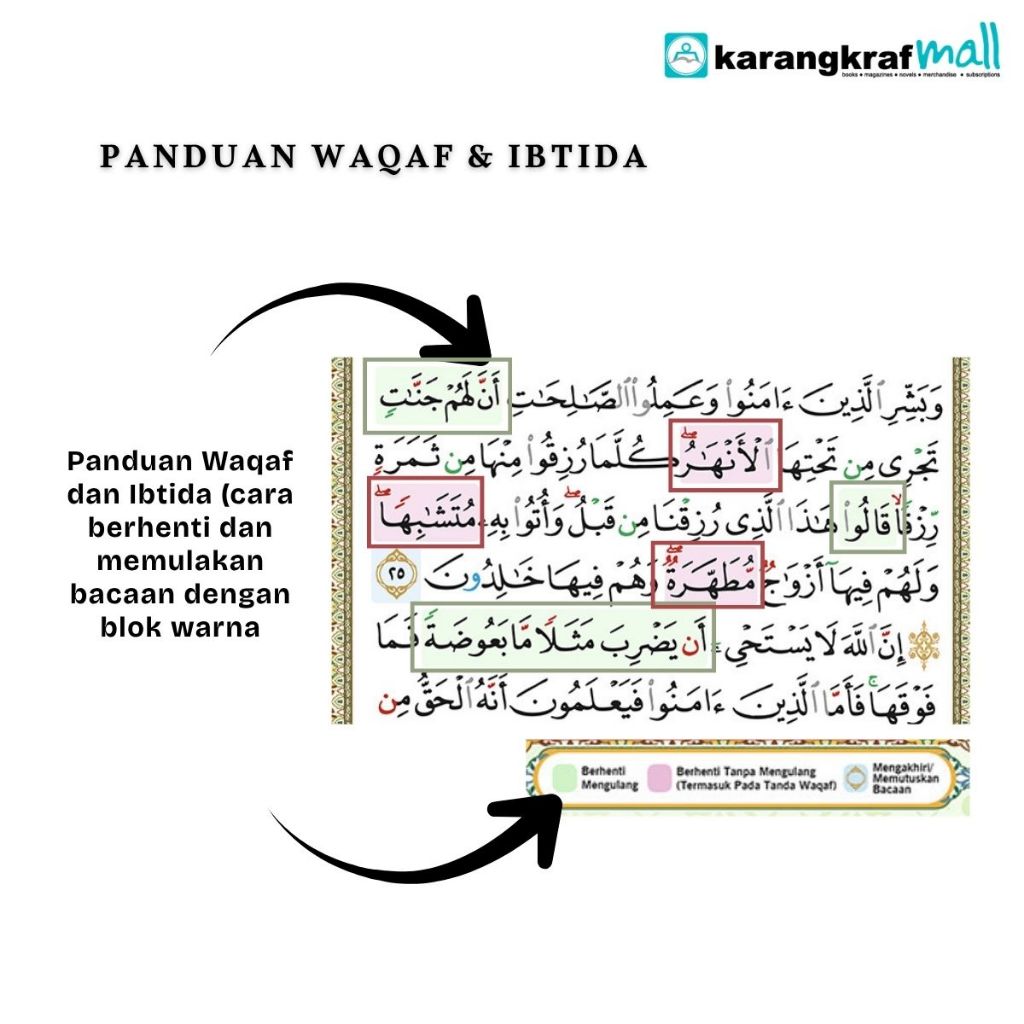 karangkraf mall
books • magazines • novels • merchandise • subscriptions
PANDUAN WAQAF & IBTIDA
Panduan Waqaf
dan Ibtida (cara
berhenti dan
memulakan
bacaan dengan
blok warna
وَبَشِّرِ ٱلَّذِينَ ءَامَنُوا۟ وَعَمِلُوا۟ ٱلصَّـٰلِحَـٰتِ أَنَّ لَهُمْ جَنَّـٰتٍ
تَجْرِى مِن تَحْتِهَا ٱلْأَنْهَـٰرُ ۖ كُلَّمَا رُزِقُوا۟ مِنْهَا مِن ثَمَرَةٍ
رِّزْقًا ۙ قَالُوا۟ هَـٰذَا ٱلَّذِى رُزِقْنَا مِن قَبْلُ ۖ وَأُتُوا۟ بِهِۦ مُتَشَـٰبِهًا ۖ
وَلَهُمْ فِيهَآ أَزْوَٰجٌ مُّطَهَّرَةٌ ۖ وَهُمْ فِيهَا خَـٰلِدُونَ ٢٥
إِنَّ ٱللَّهَ لَا يَسْتَحْىِۦٓ أَن يَضْرِبَ مَثَلًا مَّا بَعُوضَةً فَمَا
فَوْقَهَا ۚ فَأَمَّا ٱلَّذِينَ ءَامَنُوا۟ فَيَعْلَمُونَ أَنَّهُ ٱلْحَقُّ مِن
Berhenti
Mengulang
Berhenti Tanpa Mengulang
(Termasuk Pada Tanda Waqaf)
Mengakhiri/
Memutuskan
Bacaan